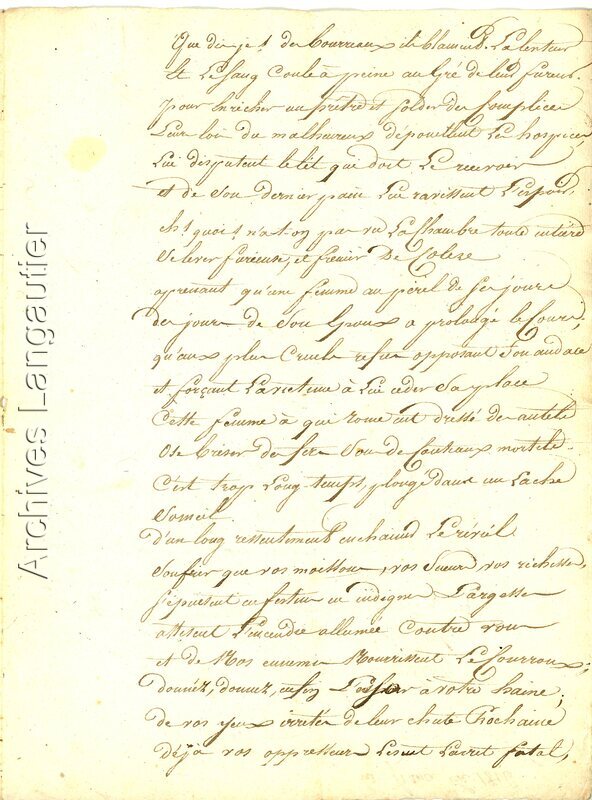 Que dis-je! des bourreaux ils blament la lenteur
Et le sang coule à peine au gré de leur fureur.
Pour enricher un prêtre et solder des complices
Leur loi du malheureux dépouillent les hospices,
Lui disputent le lit qui doit le recevoir
et de son dernier pain lui ravissent l'espoir.
eh! quoi! n'a-t-on pas vu la Chambre toute entière
Se lever furieuse, et frémir de colere
apprenant qu'une femme au péril de ses jours
des jours de son epoux a prolongé le cours,
qu'aux plus cruels refus opposant son audace
et forçant la victime à lui ceder sa place
Cette femme à qui rome eut dressé des autels
Ose briser des fers
C'est trop long-temps, plongé dans un lache
Someil
d'un long ressentiment enchainer le réveil.
Soufrir que vos moissons, vos sueurs vos richesses
S'épuisent en festins en indignes largesses
attisent l'incendie allumée contre vous
et de nos ennemis nourrissent le courroux;
donnez, donnez, enfin à votre haine;
de vos yeux irrités de leur chute prochaine
déjà vos oppresseurs lisent l'arret fatal,
Archives Langautier